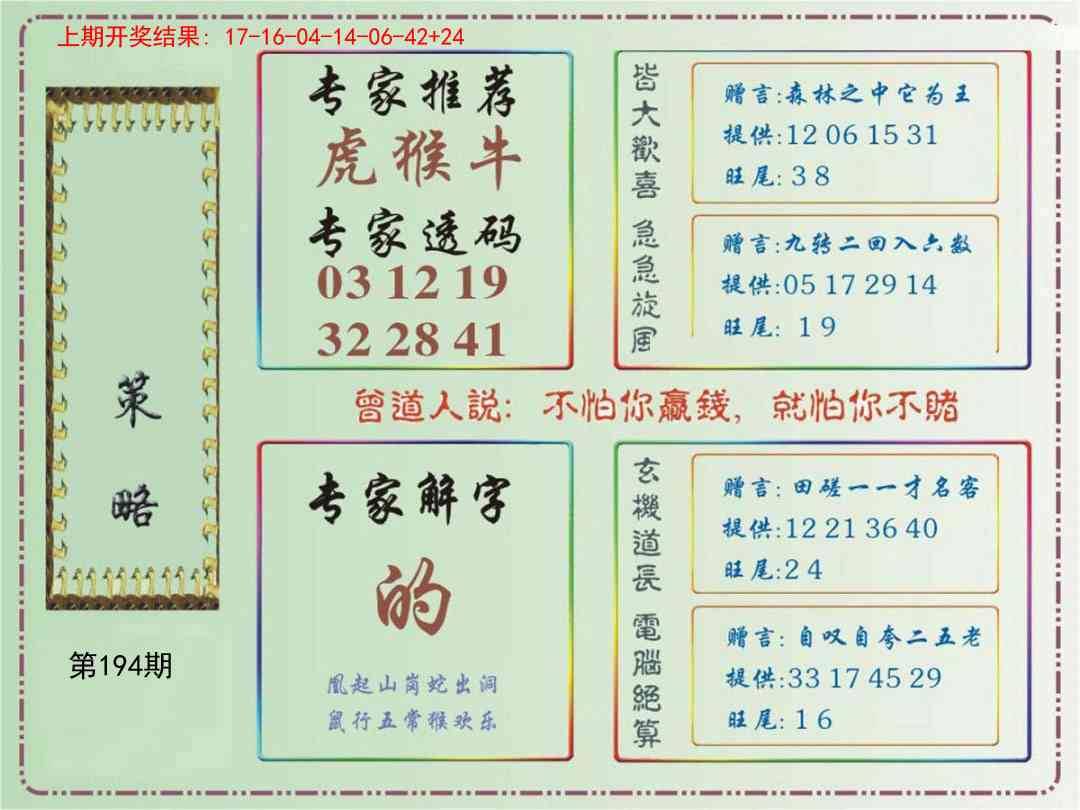 上期开奖结果: 17-16-04-14-06-42+24
策略
第194期
专家推荐
虎猴牛
专家透码
03 12 19
32 28 41
皆大歡喜
赠言:森林之中它为王
提供:12 06 15 31
旺尾: 3 8
急急旋風
赠言:九转二回入六数
提供:05 17 29 14
旺尾: 1 9
曾道人説: 不怕你贏錢, 就怕你不賭
专家解字
的
凰起山岗蛇出洞
鼠行五常猴欢乐
玄機道長
赠言: 田磋一一才名客
提供:12 21 36 40
旺尾:2 4
電腦絕算
赠言: 自叹自夸二五老
提供:33 17 45 29
旺尾: 1 6